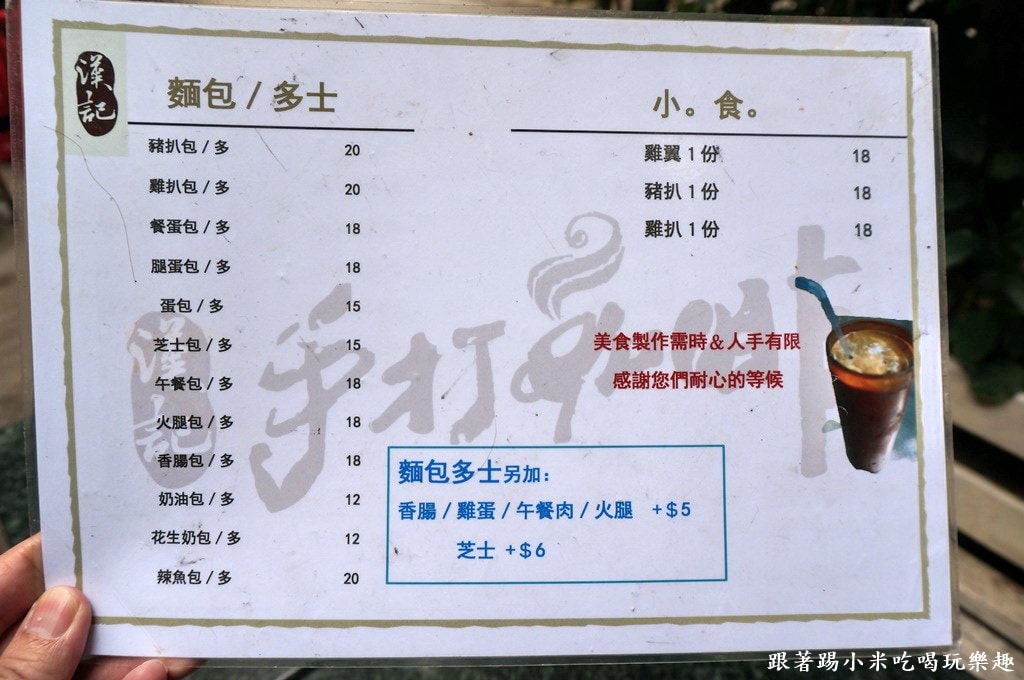 漢記
麵包 / 多士
豬扒包 / 多 20
雞扒包 / 多 20
餐蛋包 / 多 18
腿蛋包 / 多 18
蛋包 / 多 15
芝士包 / 多 15
午餐包 / 多 18
火腿包 / 多 18
香腸包 / 多 18
奶油包 / 多 12
花生奶包 / 多 12
辣魚包 / 多 20
小。食。
雞翼 1 份 18
豬扒 1 份 18
雞扒 1 份 18
美食製作需時＆人手有限
感謝您們耐心的等候
麵包多士另加：
香腸 / 雞蛋 / 午餐肉 / 火腿 +$5
芝士 +$6
漢記
手打咖啡
跟著踢小米吃喝玩樂趣